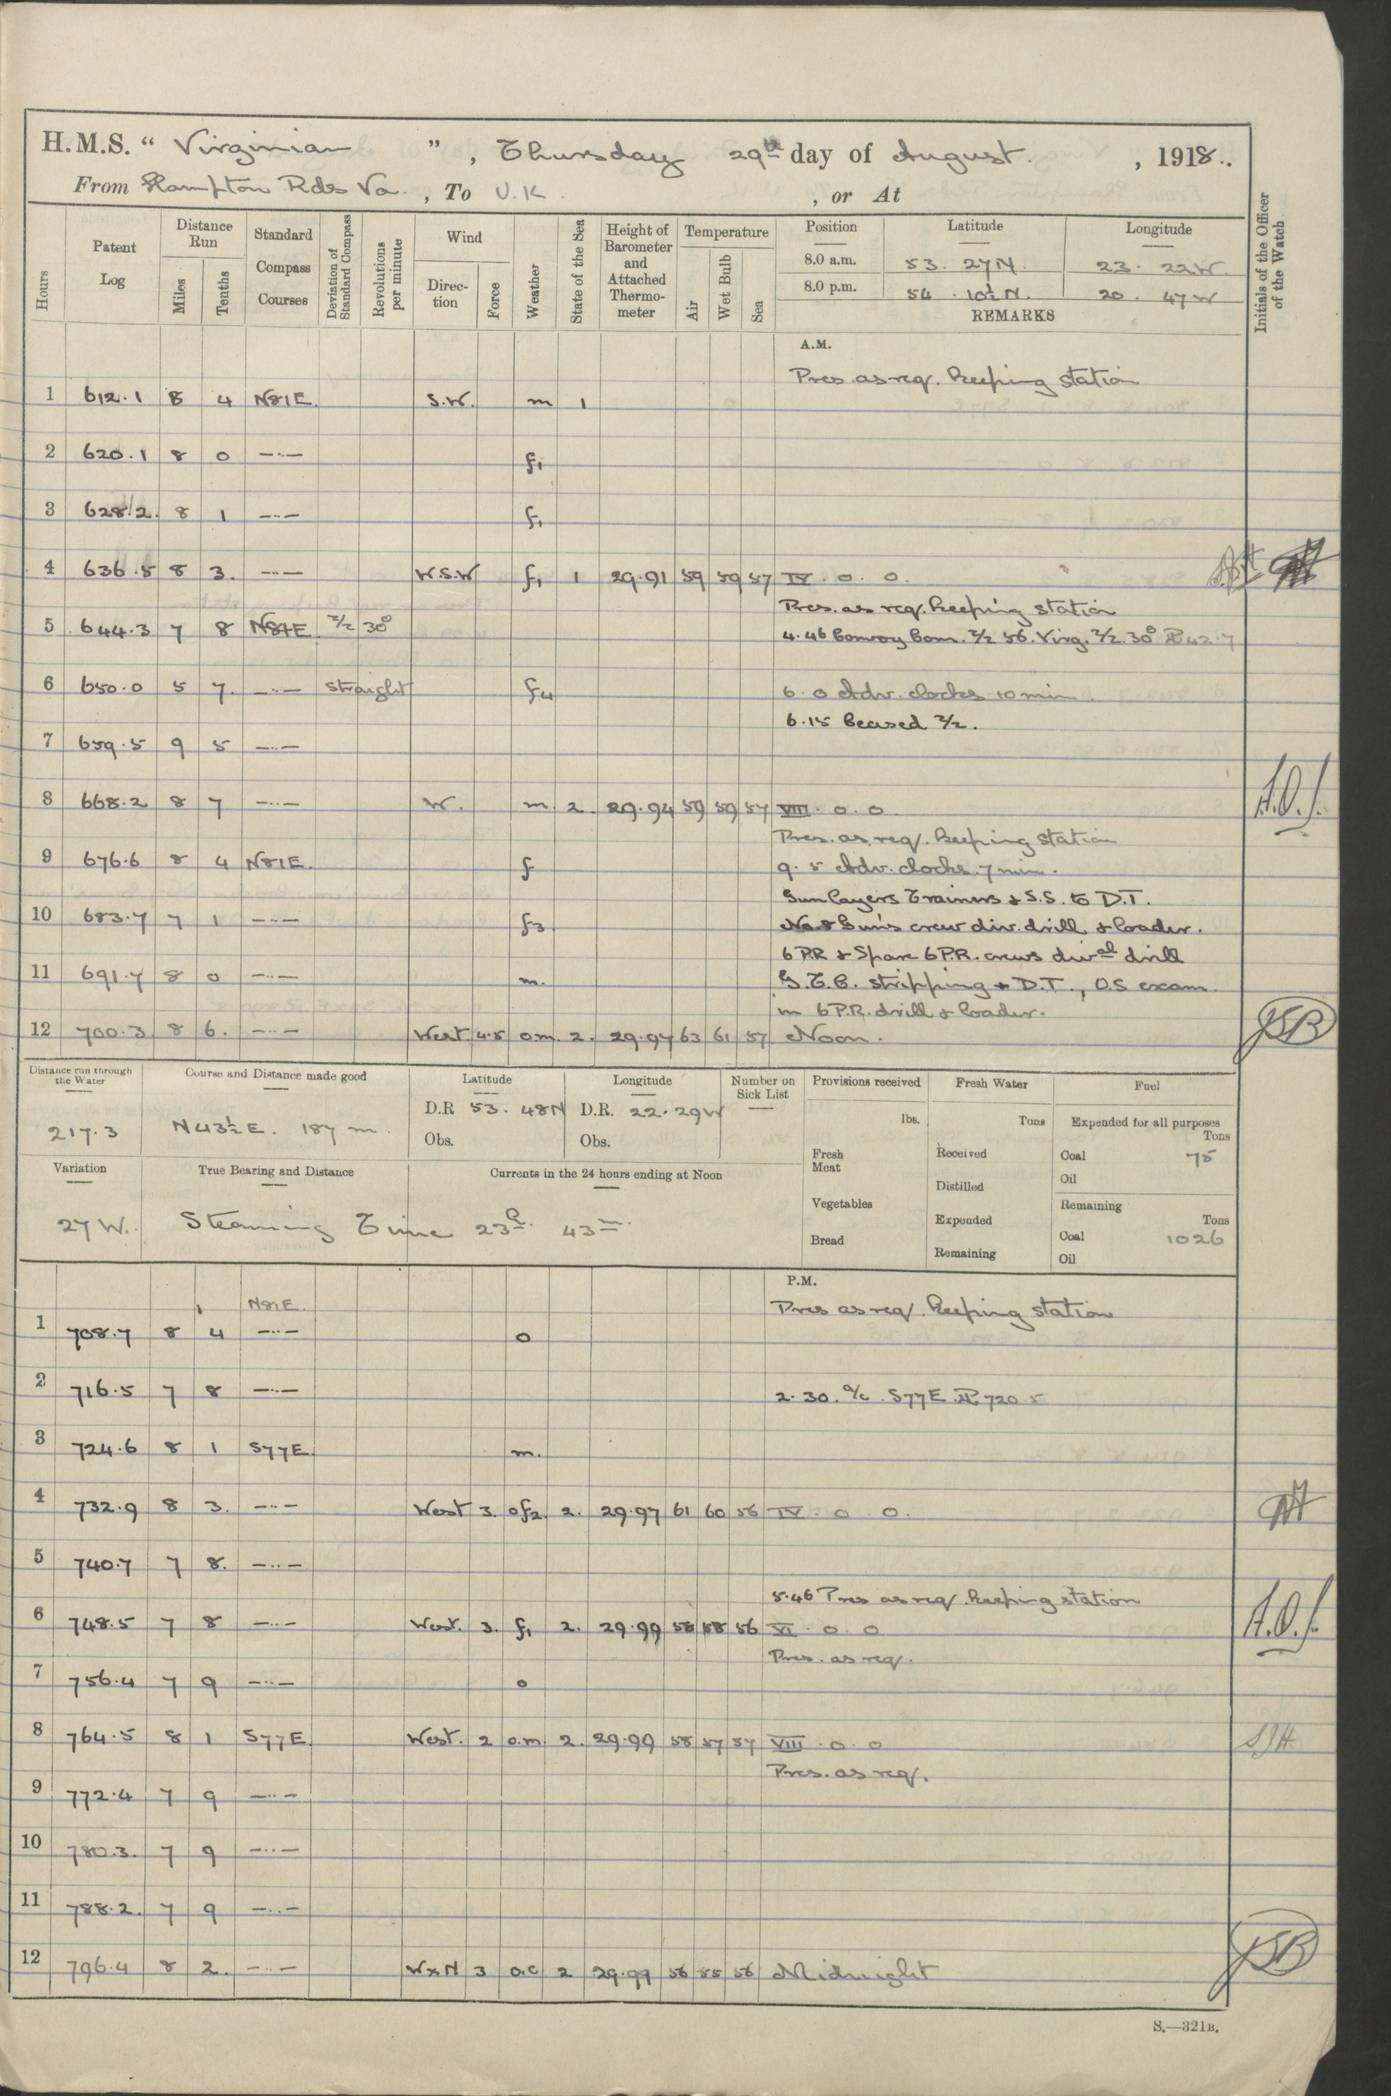 H.M.S. “ Virginian ”, Thursday 29th day of August. , 1918..
From Hampton Rds Va. , To U.K. , or At
Hours
Patent Log
Distance Run
Miles
Tenths
Standard Compass Courses
Deviation of Standard Compass
Revolutions per minute
Wind
Direction
Force
Weather
State of the Sea
Height of Barometer and Attached Thermometer
Temperature
Air
Wet Bulb
Sea
Position Latitude Longitude
8.0 a.m. 53. 27N. 23. 22W.
8.0 p.m. 54. 10½N. 20. 47W
REMARKS
Initials of the Officer of the Watch
A.M.
Pres. as req. Keeping station
1 612.1 8 4 N81E. S.W. m 1
2 620.1 8 0 —··— f1
3 628.2. 8 1 —··— f1
4 636.5 8 3. —··— W.S.W f1 1 29.91 59 59 57 IV. 0. 0.
Pres. as req. Keeping station
5 644.3 7 8 N81E Z/Z 30° 4.46 Convoy Com. Z/Z 56. Virg. Z/Z. 30° PL 42.7
6 650.0 5 7. —··— straight f4 6.0 Adv. clocks 10 min.
6.15 Ceased Z/Z.
7 659.5 9 5 —··—
8 668.2 8 7 —··— W. m 2. 29.94 59 59 57 VIII. 0. 0 A.O.J.
Pres. as req. Keeping station
9 676.6 8 4 N81E. f 9.5 Adv. clocks 7 min.
Gunlayers Trainers & S.S. to D.T.
10 683.7 7 1 —··— f3 No 8 Gun's crew div. drill & loader.
6 P.R & Spare 6 P.R. crews dival drill
11 691.7 8 0 —··— m. G.T.C. stripping & D.T., O.S exam
in 6 P.R. drill & loader.
12 700.3 8 6. —··— West 4.5 o m. 2. 29.97 63 61 57 Noon.
Distance run through the Water
217.3
Course and Distance made good
N43½E. 187 m.
Latitude
D.R 53. 48N
Obs.
Longitude
D.R. 22. 29W
Obs.
Number on Sick List
Provisions received
lbs.
Fresh Meat
Vegetables
Bread
Fresh Water
Tons
Received
Distilled
Expended
Remaining
Fuel
Expended for all purposes
Tons
Coal 75
Oil
Remaining
Tons
Coal 1026
Oil
Variation
27 W.
True Bearing and Distance
Currents in the 24 hours ending at Noon
Steaming Time 23h. 43m.
P.M.
N81E. Pres as req. Keeping station
1 708.7 8 4 —··— o
2 716.5 7 8 —··— 2.30. a/c. S77E. PL 720.5
3 724.6 8 1 S77E m.
4 732.9 8 3. —··— West 3. of2. 2. 29.97 61 60 56 IV. 0 0.
5 740.7 7 8. —··—
5.46 Pres as req. Keeping station
6 748.5 7 8 —··— West. 3. f1 2. 29.99 58 58 56 VI. 0 0 A.O.J.
Pres. as req.
7 756.4 7 9 —··— o
8 764.5 8 1 S77E West. 2 o.m. 2. 29.99 58 57 57 VIII. 0. 0
Pres. as req.
9 772.4 7 9 —··—
10 780.3. 7 9 —··—
11 788.2. 7 9 —··—
12 796.4 8 2. —··— WxN 3 o.c 2 29.99 56 55 56 Midnight
S.—321B.